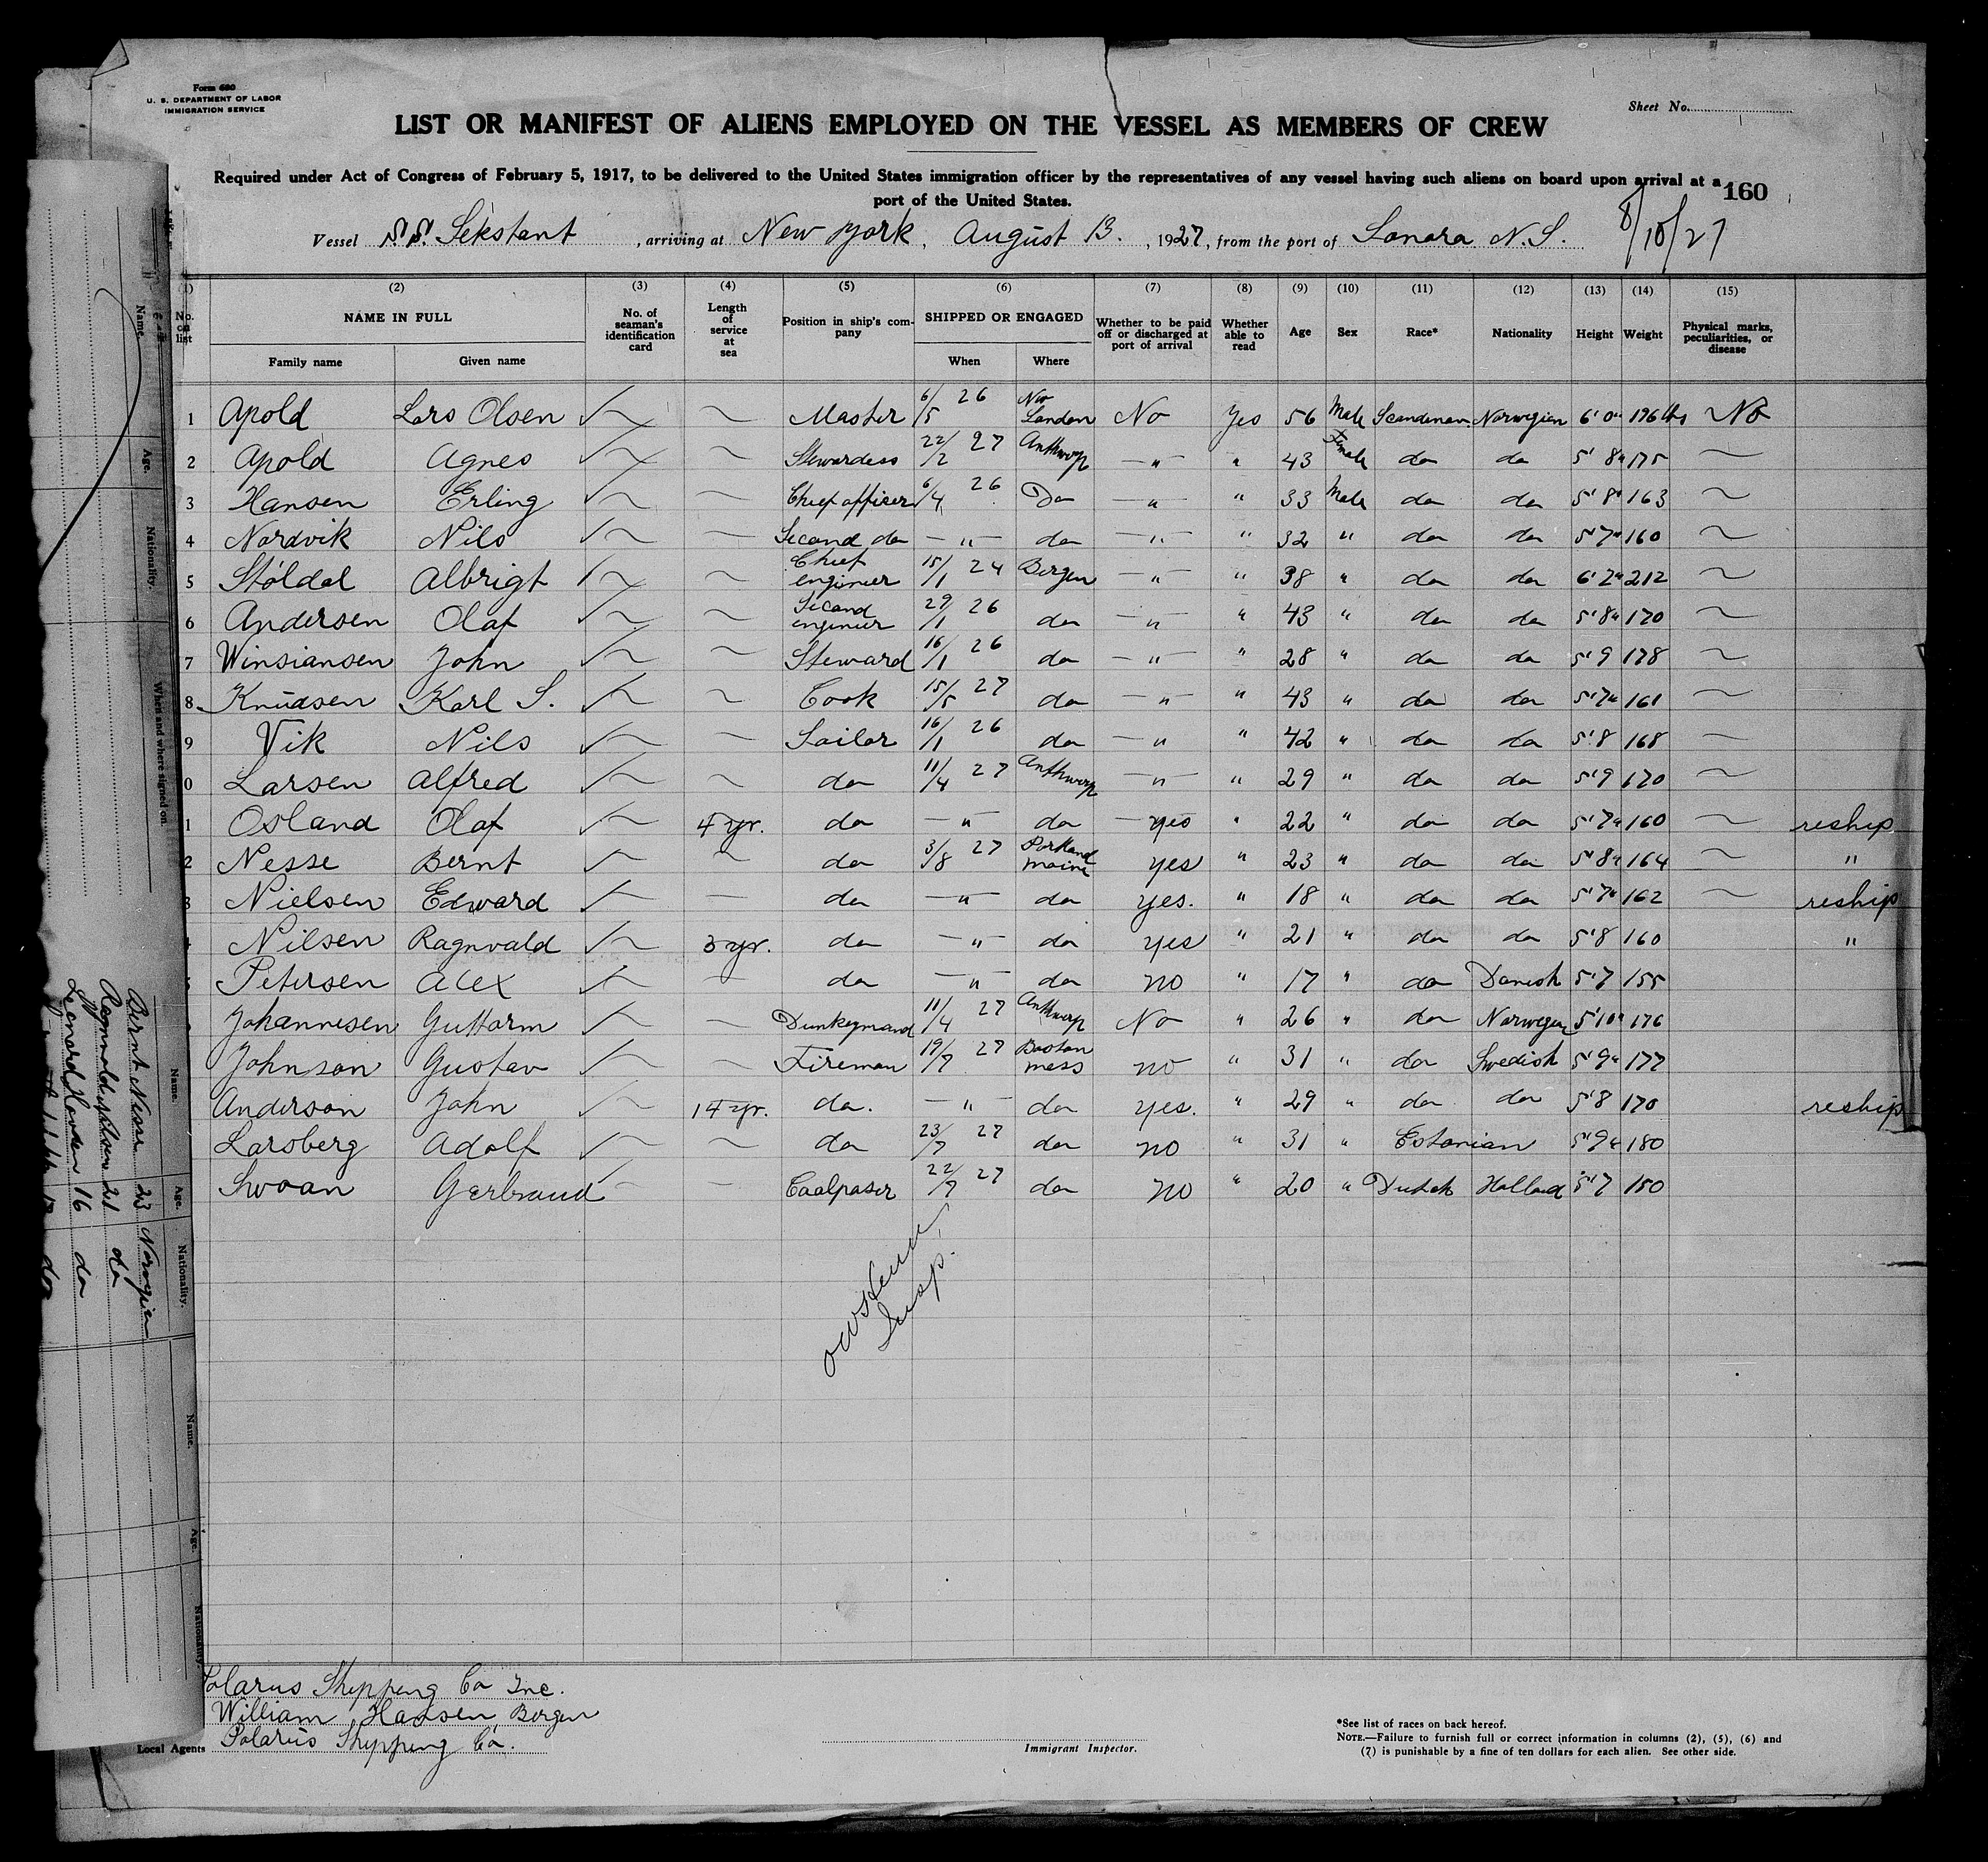 Form 680
U. S. DEPARTMENT OF LABOR
IMMIGRATION SERVICE
Sheet No.
LIST OR MANIFEST OF ALIENS EMPLOYED ON THE VESSEL AS MEMBERS OF CREW
Required under Act of Congress of February 5, 1917, to be delivered to the United States immigration officer by the representatives of any vessel having such aliens on board upon arrival at a
port of the United States.
160
Vessel S.S. Sekstant, arriving at New York, August 13., 1927, from the port of Sonora N.S.
(1) (2) (3) (4) (5) (6) (7) (8) (9) (10) (11) (12) (13) (14) (15)
No. on list NAME IN FULL Family name Given name No. of seaman's identification card Length of service at sea Position in ship's company SHIPPED OR ENGAGED When Where Whether to be paid off or discharged at port of arrival Whether able to read Age Sex Race* Nationality Height Weight Physical marks, peculiarities, or disease
1 Apold Lars Olsen Master 6/5 26 London No Yes 56 Male Norwegian 6' 0" 196 lbs No
2 Apold Agnes Stewardess 22/2 27 Anthwerp " " 43 Female do do 5' 8" 175
3 Hansen Erling Chief officer 6/4 26 Do " " 33 Male do do 5' 8" 163
4 Nordvik Nils Second do " do " " 32 " do do 5' 7" 160
5 Stöldal Albrigt Chief engineer 15/1 24 Bergen " " 38 " do do 6' 2" 212
6 Andersen Olaf Second engineer 29/1 26 do " " 43 " do do 5' 8" 170
7 Winsiansen John Steward 16/1 26 do " " 28 " do do 5' 9 178
8 Knudsen Karl S. Cook 15/5 27 do " " 43 " do do 5' 7" 161
9 Vik Nils Sailor 16/1 26 do " " 42 " do do 5' 8 168
0 Larsen Alfred do 11/4 27 Anthwerp " " 29 " do do 5' 9 170
1 Osland Olaf 4 yr. do " do yes " 22 " do do 5' 7" 160 reship
2 Nesse Bernt do 3/8 27 Portland Maine yes " 23 " do do 5' 8" 164 "
3 Nielsen Edward do " do yes. " 18 " do do 5' 7" 162 reship
Nilsen Ragnvald 3 yr. do " do yes " 21 " do do 5' 8 160 "
Petersen Alex do " do no " 17 " do Danish 5' 7 155
Johannesen Guttorm Dunkeymand 11/4 27 Anthwerp No " 26 " do Norwegen 5' 10" 176
Johnson Gustav Fireman 19/7 27 Boston mass no " 31 " do Swedish 5' 9" 177
Anderson John 14 yr. do. " do yes. " 29 " do do 5' 8 170 reship
Larsberg Adolf do 23/7 27 do no " 31 " Estonian 5' 9" 180
Swaan Gerbrand Coalpaser 22/7 27 do no " 20 " Dutch Holland 5' 7 150
Insp.
Polarus Shipping Co Inc.
William Hansen, Bergen
Local Agents Polarus Shipping Co.
Immigrant Inspector.
*See list of races on back hereof.
NOTE.—Failure to furnish full or correct information in columns (2), (5), (6) and
(7) is punishable by a fine of ten dollars for each alien. See other side.
Name.
Age.
Nationality.
When and where signed on.
Name. Age. Nationality.
Bernt Nesse 23 Norwegian
21 do
Lenard 16 do
do
Name.
Age.
Nationality.